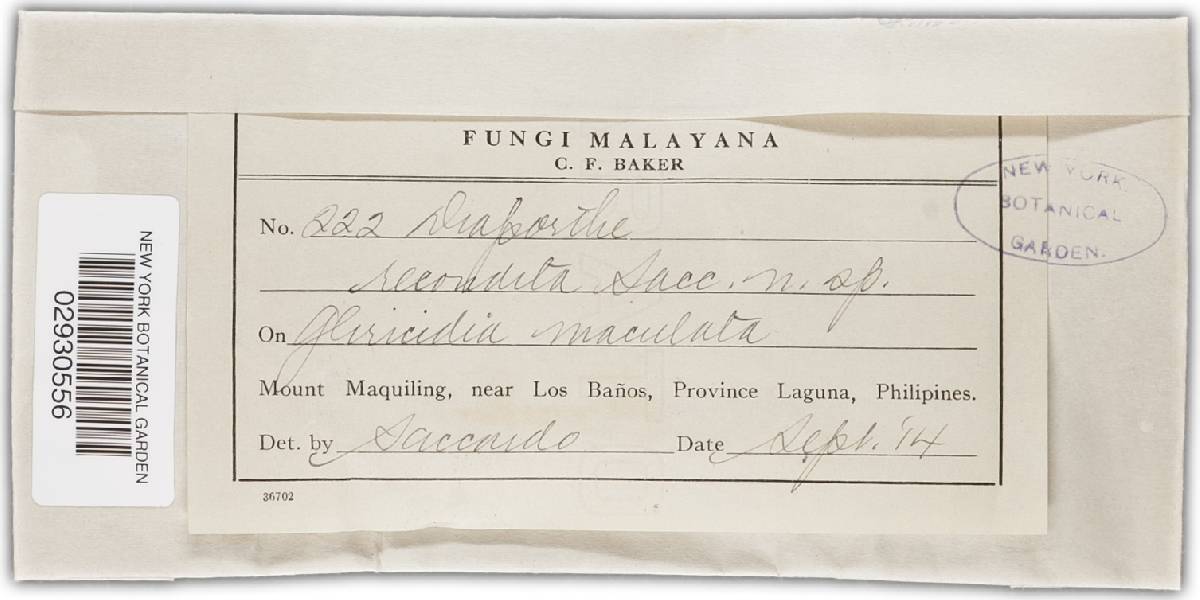 FUNGI MALAYANA
C. F. BAKER
No. 222 Diaporthe
recondita Sacc. n. sp.
On Gliricidia maculata
Mount Maquiling, near Los Baños, Province Laguna, Philipines.
Det. by Saccardo Date Sept. '14
36702
NEW YORK
BOTANICAL
GARDEN.
NEW YORK BOTANICAL GARDEN
02930556